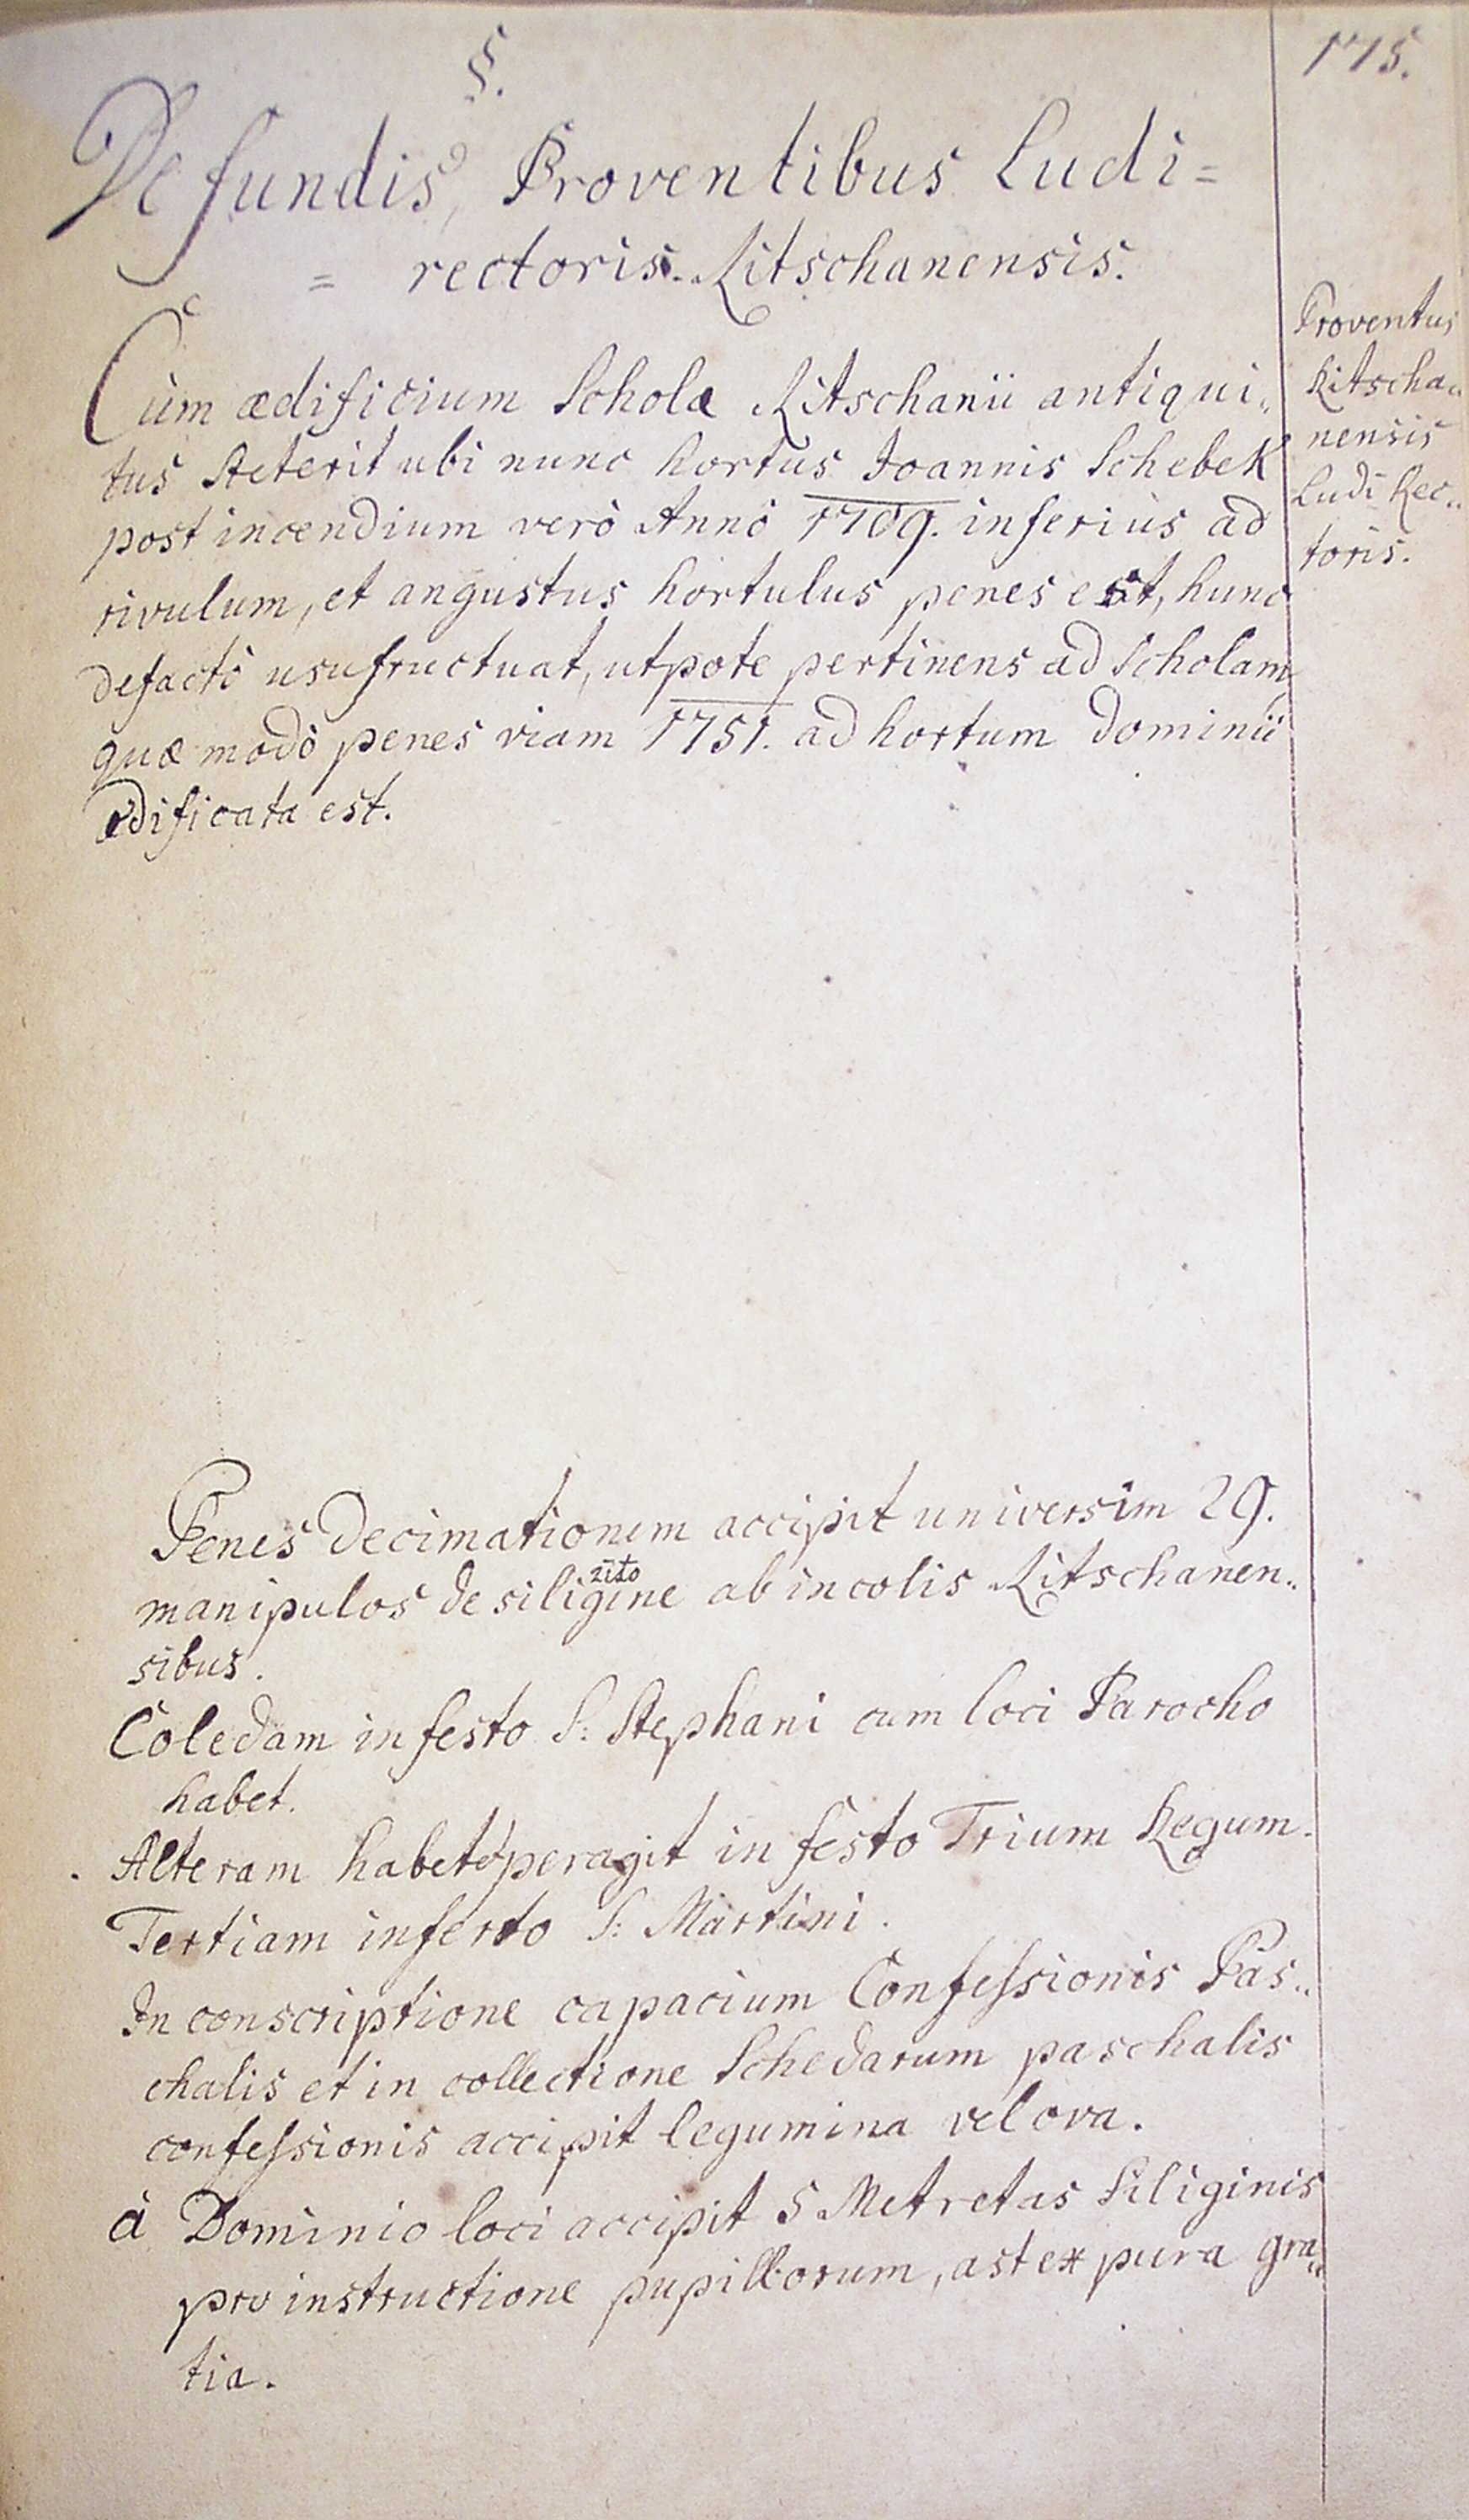 §.
175.
De fundis, Proventibus Ludi=
= rectoris Ritschanensis.
Proventus
Ritscha„
nensis
Ludi Rec„
toris.
Cùm ædificium Scholæ Ritschanii antiqui„
tus steterit ubi nunc hortus Joannis Schebek
post incendium verò Annô 1709. inferiùs ad
rivulum, et angustus hortulus penes est, hunc
defactô usufructuat, utpote pertinens ad Scholam
quæ modò penes viam 1751. ad hortum Dominii
ædificata est.
Penes Decimationem accipit universim 29.
zito
manipulos de siligine ab incolis Ritschanen„
sibus.
Coledam in festo S: Stephani cum loci Parocho
habet.
Alteram habet peragit in festo Trium Regum.
Tertiam in festo S: Martini.
In conscriptione capacium Confessionis Pas„
chalis et in collectione Schedarum paschalis
confessionis accipit legumina vel ova.
à Dominio loci accipit 5 Metretas Siliginis
pro instructione pupillorum, ast ex pura gra„
tia.